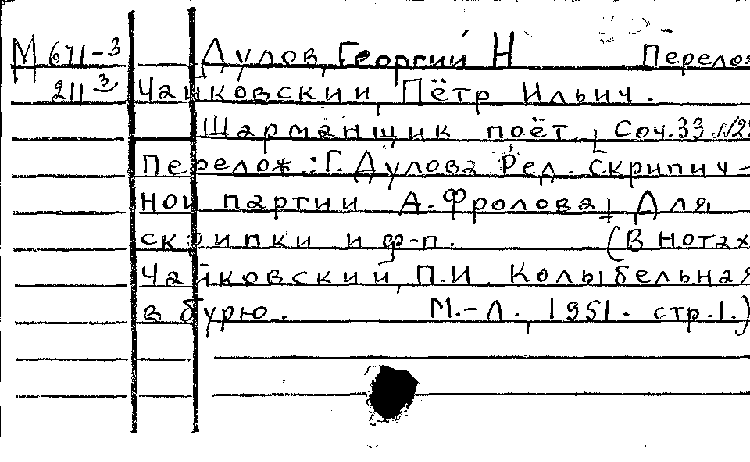 М 671-3 Дулов, Георгий Н Перелож
211 3 Чайковский, Пётр Ильич.
Шарманщик поёт. Соч.33 №23
Перелож.: Г. Дулова Ред. скрипич-
ной партии А. Фролова, Для
скрипки и ф-п. (В нотах
Чайковский, П.И. Колыбельная
в бурю. М.-Л., 1951. стр.1.)